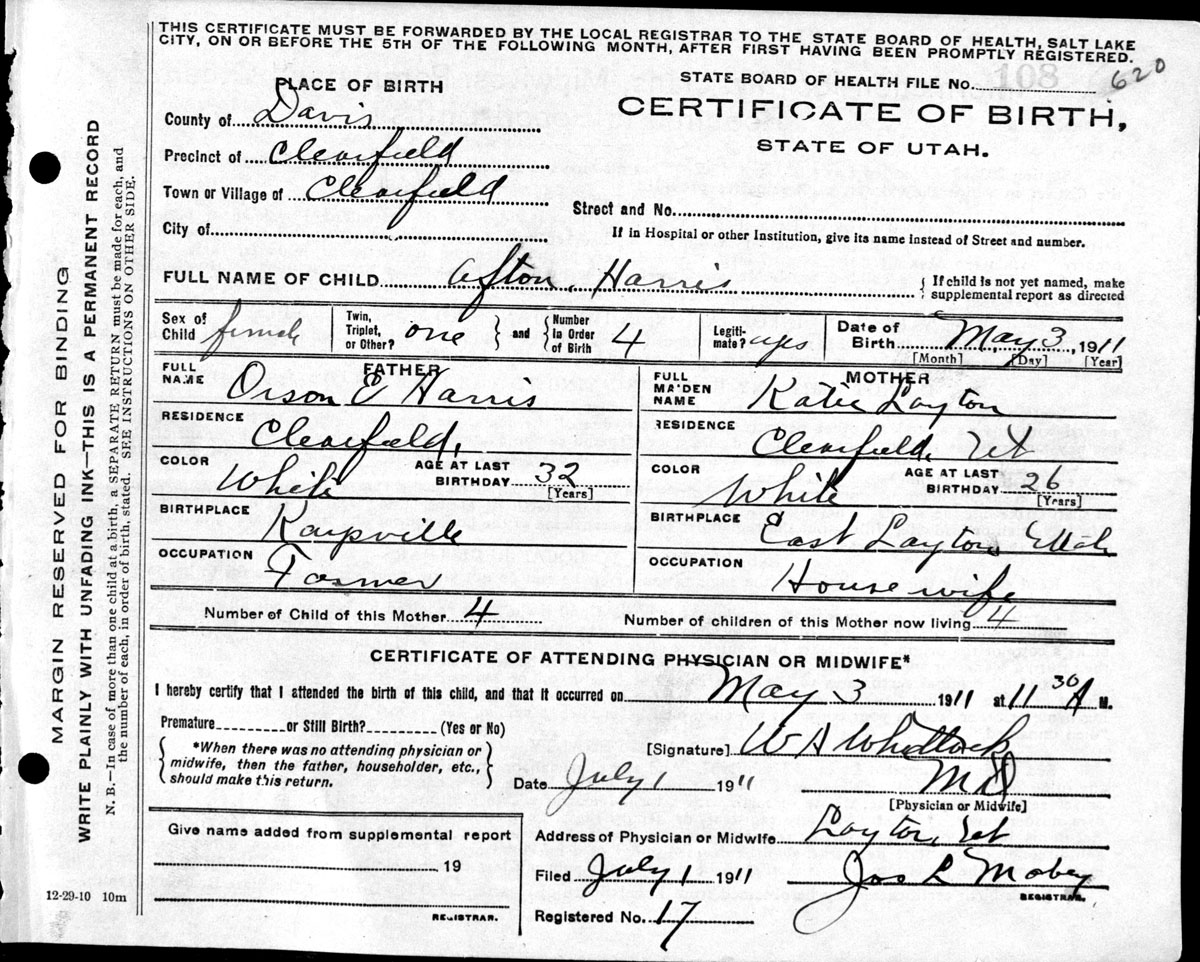 THIS CERTIFICATE MUST BE FORWARDED BY THE LOCAL REGISTRAR TO THE STATE BOARD OF HEALTH, SALT LAKE
CITY, ON OR BEFORE THE 5TH OF THE FOLLOWING MONTH, AFTER FIRST HAVING BEEN PROMPTLY REGISTERED.
STATE BOARD OF HEALTH FILE No. 108 620
CERTIFICATE OF BIRTH,
STATE OF UTAH.
PLACE OF BIRTH
County of Davis
Precinct of Clearfield
Town or Village of Clearfield
City of
Street and No.
If in Hospital or other Institution, give its name instead of Street and number.
FULL NAME OF CHILD Afton Harris
{ If child is not yet named, make
supplemental report as directed
Sex of Child female
Twin, Triplet, or Other? one } and { Number in Order of Birth 4
Legitimate? yes
Date of Birth May 3, 1911
[Month] [Day] [Year]
FATHER
FULL NAME Orson E Harris
RESIDENCE Clearfield,
COLOR White AGE AT LAST BIRTHDAY 32 [Years]
BIRTHPLACE Kaysville
OCCUPATION Farmer
MOTHER
FULL MAIDEN NAME Katie Layton
RESIDENCE Clearfield Ut
COLOR White AGE AT LAST BIRTHDAY 26 [Years]
BIRTHPLACE East Layton Utah
OCCUPATION House wife
Number of Child of this Mother 4 Number of children of this Mother now living 4
CERTIFICATE OF ATTENDING PHYSICIAN OR MIDWIFE*
I hereby certify that I attended the birth of this child, and that it occurred on May 3 1911 at 11 30 A M.
Premature or Still Birth? (Yes or No)
{ *When there was no attending physician or
midwife, then the father, householder, etc.,
should make this return. }
[Signature] W A Whitlock
Date July 1 1911 M D
[Physician or Midwife]
Give name added from supplemental report
19
REGISTRAR.
Address of Physician or Midwife Layton, Ut
Filed July 1 1911 Jos L Mabey
REGISTRAR.
Registered No. 17
MARGIN RESERVED FOR BINDING
WRITE PLAINLY WITH UNFADING INK—THIS IS A PERMANENT RECORD
N. B.—In case of more than one child at a birth, a SEPARATE RETURN must be made for each, and
the number of each, in order of birth, stated. SEE INSTRUCTIONS ON OTHER SIDE.
12-29-10 10m